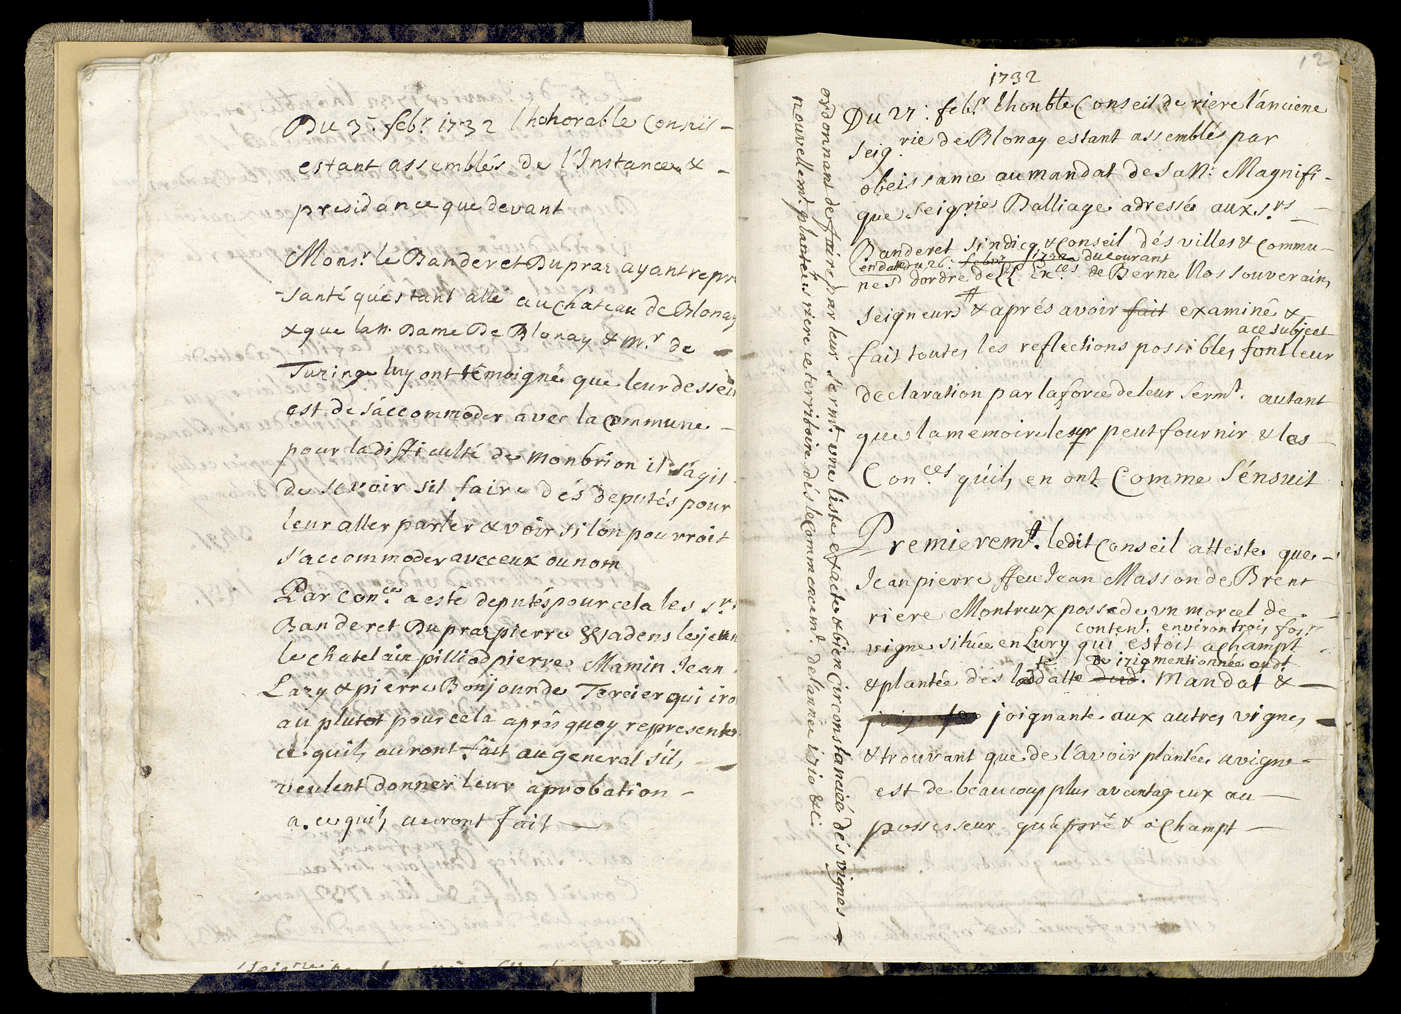 Du 3e. febr. 1732 l'honorable Conseil
estant assemblés de l'Instance &
presidance que devant
Monsr. le Banderet Dupraz ayant repre
santé qu'estant allé au Château de Blonay
& que la M Dame De Blonay & Mr. de
Turing luy ont témoigné que leur dessein
est de s'accommoder avec la Commune
pour la difficulté de Monbrion il s'agit
de scavoir s'il faire dés deputés pour
leur aller parler & voir si l'on pourroit
s'accommoder avec eux ou nom
Par Conce a este deputés pour cela les srs
Banderet Dupraz pierre le jeun
le chatelain pilliod pierre Mamin Jean
Lazy & pierre Bonjour de Tercier qui iro
au plutot pour cela aprés quoy represente
ce quils auront fait au general s'ils
veulent donner leur aprobation
a. ce quils auront fait
12
1732
Du 27: febr. l'honble Conseil de riere l'anciene
Seig.rie de Blonay estant assemblés par
obeissance au mandat de Sa Ne: Magnifi-
que Seigrie Balliage adressé aux srs
Banderet Sindicq & Conseil dés villes & Commu-
en date du 26: febvr 1732 du courant
nes d'ordre de LL Exces de Berne Nos souverains
Seigneurs & aprés avoir fait examiné &
a ce subject
fait toutes les reflections possibles font leur
declaration par la force de leur sermt. autant
que la memoire les peut fournir & les
Conces qu'ils en ont Comme s'énsuit
Premieremt. ledit Conseil atteste que
Jean pierre ffeu Jean Masson de Brent
riere Montreux possede un morcel de
content. environ trois fossr
vigne située en Lury qui estoit à Champt
De 1719 mentionnée audt
& plantée dés la ddatte dud. Mandat &
joignante aux autres vignes
& trouvant que de l'avoir plantée a vigne
est de beaucoup plus avantageux au
possesseur qu'a pré & à Champt
ordonnant de faire par leur sermt. une liste exacte & bien Circonstanciée dés vignes
nouvellemt. plantées riere ce territoire dés le Commencemt. de l'année 1710 & ci